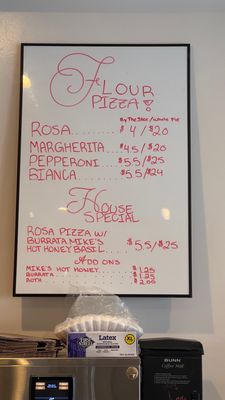 Flour
Pizza!
By The Slice / Whole Pie
Rosa......... $4/$20
Margherita..... $4.5/$20
Pepperoni..... $5.5/$25
Bianca......... $5.5/$24
House
Special
Rosa Pizza w/
Burrata Mike's
Hot Honey Basil..... $5.5/$25
Add Ons
Mike's Hot Honey......... $1.25
Burrata......... $1.25
Both......... $2.00
XL
Latex
BUNN
Coffee Mill